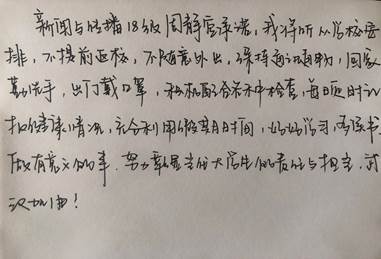 新闻与传播18级周静雪承诺，我将听从学校安
排，不提前返校，不随意外出，保持通讯通畅，回家
勤洗手，出门戴口罩，积极配合各种检查，每日及时汇
报健康情况，充分利用假期时间，好好学习，多读书
做有意义的事，努力彰显当代大学生的责任与担当，武
汉加油！